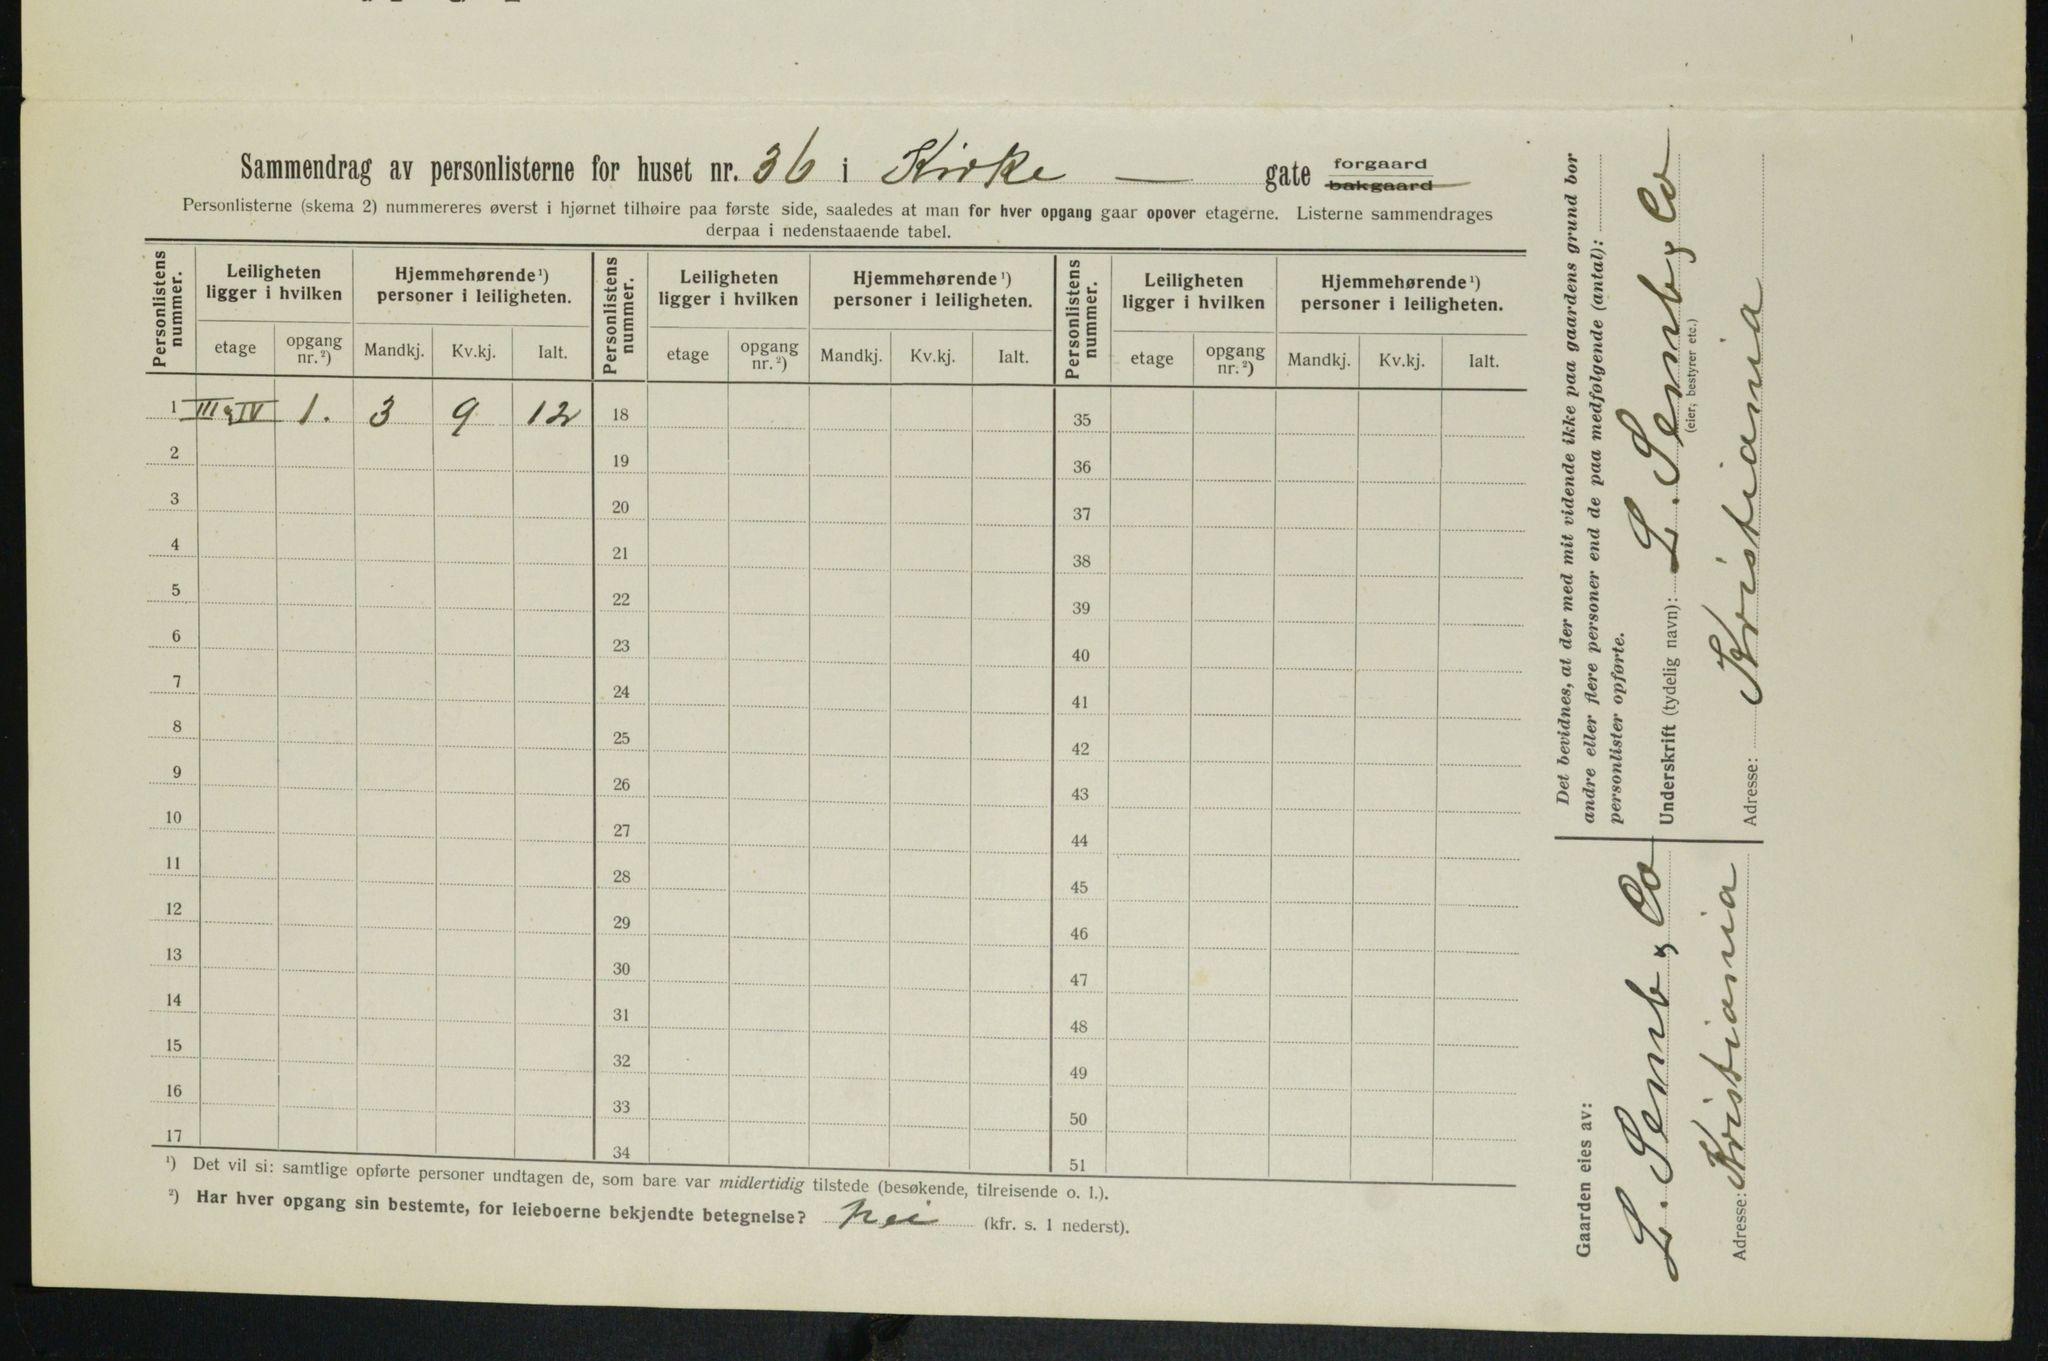 Sammendrag av personlisterne for huset nr. 36 i Kirke — gate forgaard
bakgaard
Personlisterne (skema 2) nummereres øverst i hjørnet tilhøire paa første side, saaledes at man for hver opgang gaar opover etagerne. Listerne sammendrages
derpaa i nedenstaaende tabel.
Personlistens nummer. Leiligheten ligger i hvilken Hjemmehørende ¹) personer i leiligheten. Personlistens nummer. Leiligheten ligger i hvilken Hjemmehørende ¹) personer i leiligheten. Personlistens nummer. Leiligheten ligger i hvilken Hjemmehørende ¹) personer i leiligheten.
etage opgang nr. ²) Mandkj. Kv.kj. Ialt. etage opgang nr. ²) Mandkj. Kv.kj. Ialt. etage opgang nr. ²) Mandkj. Kv.kj. Ialt.
1 III & IV 1. 3 9 12 18 35
2 19 36
3 20 37
4 21 38
5 22 39
6 23 40
7 24 41
8 25 42
9 26 43
10 27 44
11 28 45
12 29 46
13 30 47
14 31 48
15 32 49
16 33 50
17 34 51
¹) Det vil si: samtlige opførte personer undtagen de, som bare var midlertidig tilstede (besøkende, tilreisende o. l.).
²) Har hver opgang sin bestemte, for leieboerne bekjendte betegnelse? Nei (kfr. s. 1 nederst).
Det bevidnes, at der med mit vidende ikke paa gaardens grund bor
andre eller flere personer end de paa medfølgende (antal):
personlister opførte.
Underskrift (tydelig navn): L. Semb & Co
(eier, bestyrer etc.)
Adresse: Kristiania
Gaarden eies av:
L. Semb & Co
Adresse: Kristiania